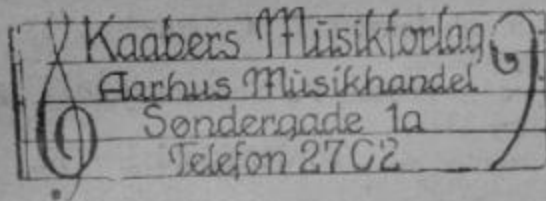 Kaabers Musikforlag
Aarhus Musikhandel
Søndergade 1a
Telefon 27 02